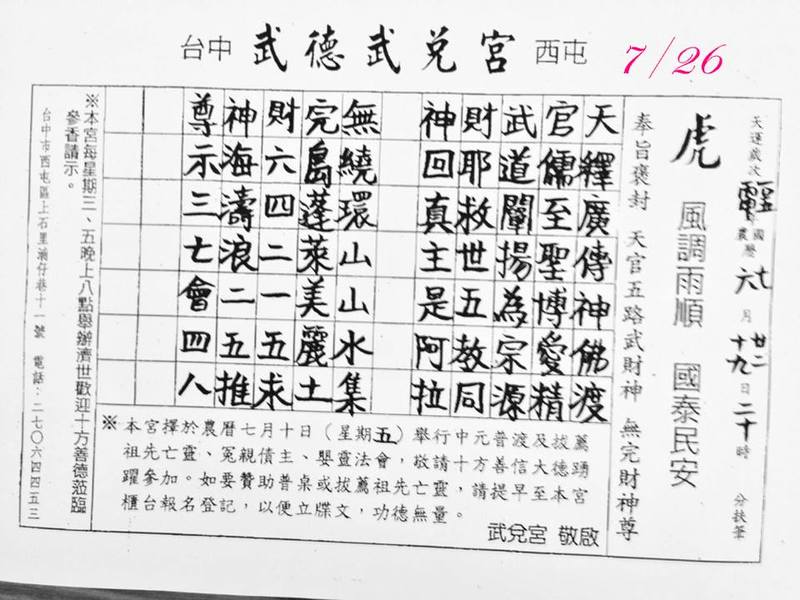 台中 武德武兌宮 西屯 7/26
天運歲次 國農曆 七六月 廿二十九日 二十時 分扶筆
虎 風調雨順 國泰民安
奉旨褒封 天官五路武財神 無完財神尊
天釋廣傳神佛渡
官儒至聖博愛精
武道闡揚為宗源
財耶救世五教同
神回真主是阿拉
無繞環山山水集
完島蓬萊美麗土
財六四二一五求
神海濤浪二五推
尊示三七會四八
※本宮擇於農曆七月十日（星期五）舉行中元普渡及拔薦
祖先亡靈、冤親債主、嬰靈法會，敬請十方善信大德踴
躍參加。如要贊助普桌或拔薦祖先亡靈，請提早至本宮
櫃台報名登記，以便立牒文，功德無量。
武兌宮 敬啟
※本宮每星期三、五晚上八點舉辦濟世歡迎十方善德蒞臨
參香請示。
台中市西屯區上石里湳仔巷十一號 電話：二七０六四四五三